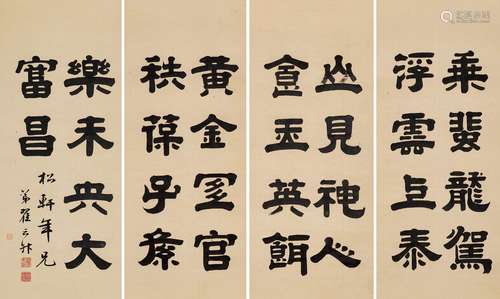 乘蜚龍駕
浮雲上泰
山見神人
食玉英餌
黃金宜官
秩葆子孫
樂未央大
富昌
松軒年兄
弟翟云升